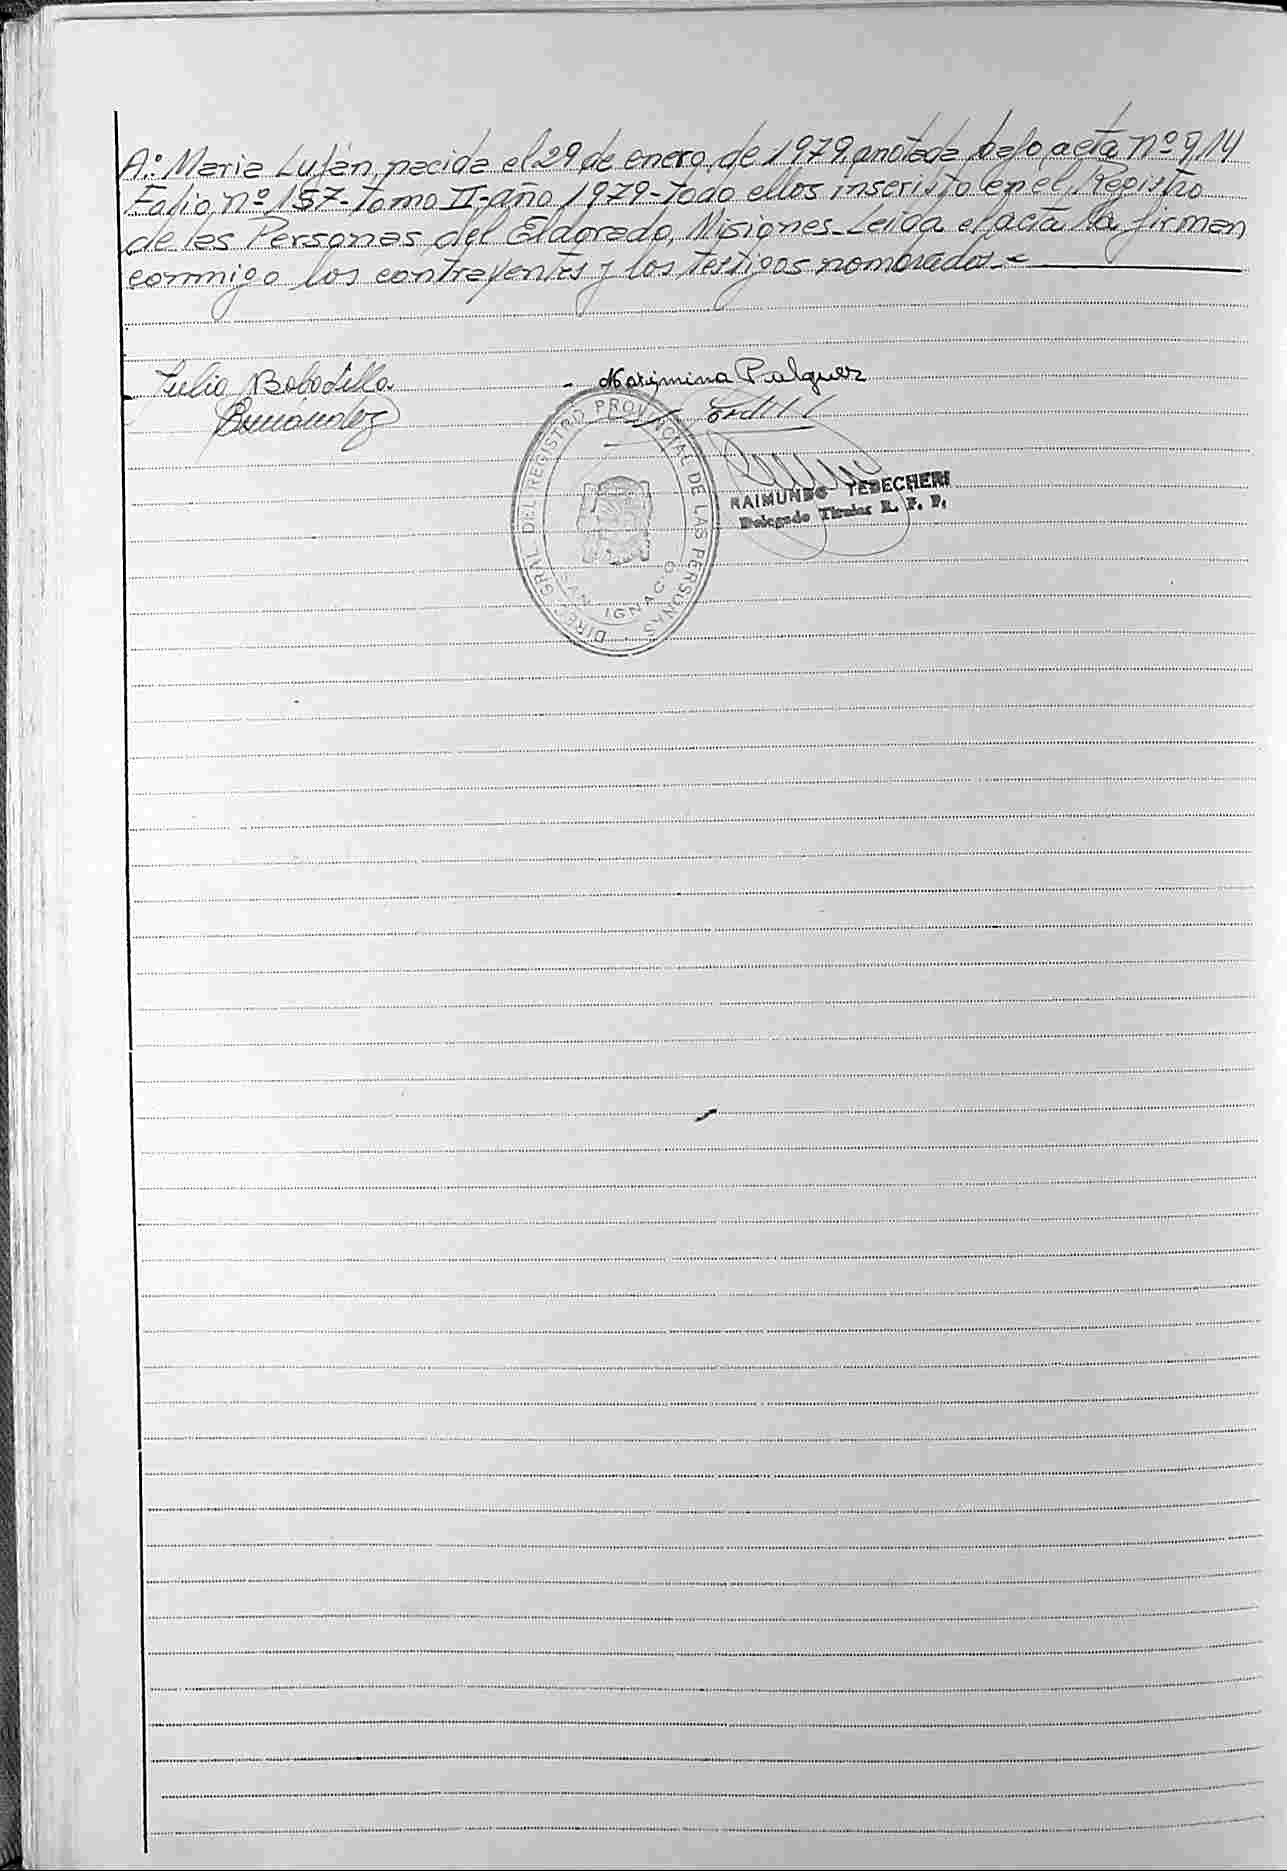 A: Maria Luján, nacida el 29 de enero, de 1979, anotada bajo, acta nº 914
Folio, nº 157- tomo II- año 1979- todo ellos inscristo en el Registro
de las Personas, del Eldorado, Misiones- Leida el acta la firman
conmigo los contrayentes y los testigos nombrados.-
Julio Bobadilla - Marjimina Palguez
Benandez
DIREC. GRAL. DEL REGISTRO PROVINCIAL DE LAS PERSONAS
SAN IGNACIO
RAIMUNDO TEBECHERI
Delegado Titular R. P. P.